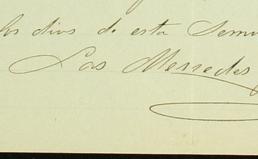 los dias de esta Sema
Las Mercedes